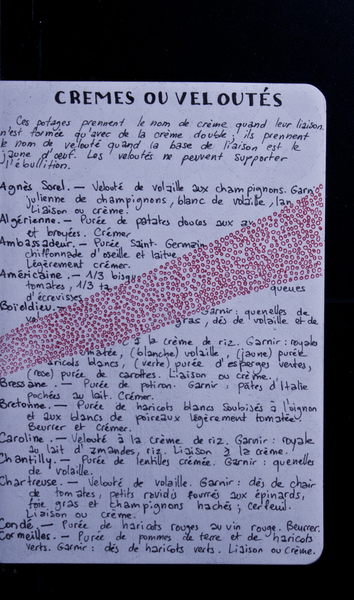 CREMES OU VELOUTÉS
Ces potages prennent le nom de crème quand leur liaison
n'est formée qu'avec de la crème double ; ils prennent
le nom de velouté quand la base de liaison est le
jaune d'œuf. Les veloutés ne peuvent supporter
l'ébullition.
Agnès Sorel. — Velouté de volaille aux champignons. Garn
julienne de champignons, blanc de volaille, lan
Liaison ou crème.
Algérienne. — Purée de patates douces aux
et broyées. Crémer
Ambassadeur. — Purée Saint-Germain
chiffonnade d'oseille et laitue
Légèrement crémer.
Américaine. — 1/3 bisqu
tomates, 1/3 ta queues
d'écrevisses
Boïeldieu. — Garnir : quenelles de
gras, dés de volaille et de
à la crème de riz. Garnir : royale
tomatée, (blanche) volaille, (jaune) purée
haricots blancs, (verte) purée d'asperges vertes,
(rose) purée de carottes. Liaison ou crème.
Bressane. — Purée de potiron. Garnir : pâtes d'Italie
pochées au lait. Crémer.
Bretonne. — Purée de haricots blancs soubisés à l'oignon
et aux blancs de poireaux légèrement tomatée.
Beurrer et crémer.
Caroline. — Velouté à la crème de riz. Garnir : royale
au lait d'amandes, riz. Liaison à la crème.
Chantilly. — Purée de lentilles crémée. Garnir : quenelles
de volaille.
Chartreuse. — Velouté de volaille. Garnir : dés de chair
de tomates, petits raviolis fourrés aux épinards,
foie gras et champignons hachés ; cerfeuil.
Liaison ou crème.
Condé. — Purée de haricots rouges au vin rouge. Beurrer.
Cormeilles. — Purée de pommes de terre et de haricots
verts. Garnir : dés de haricots verts. Liaison ou crème.